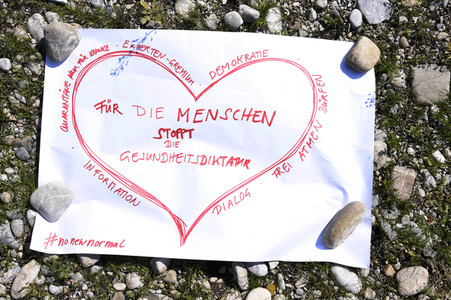 QUARANTÄNE NUR FÜR KRANKE
EXPERTEN-GREMIUM
DEMOKRATIE
FREI ATMEN DÜRFEN
FÜR DIE MENSCHEN
STOPPT
DIE
GESUNDHEITSDIKTATUR
INFORMATION
DIALOG
#nonewnormal